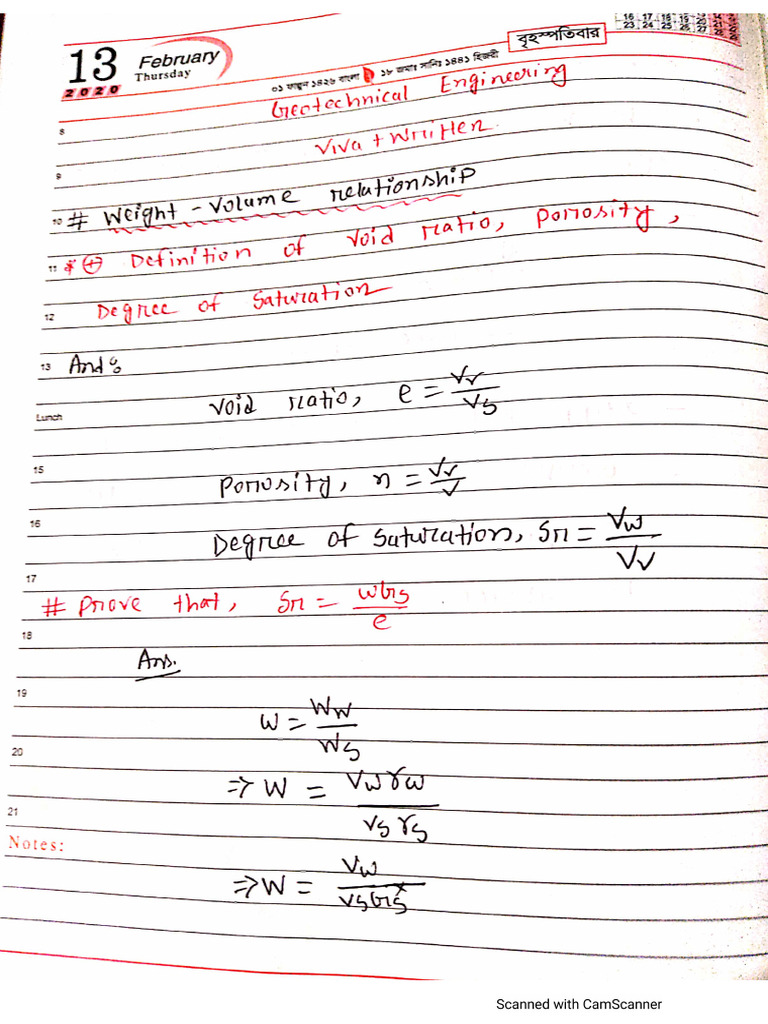 13 February
Thursday
2020
০১ ফাল্গুন ১৪২৬ বাংলা ১৮ জমাঃ সানিঃ ১৪৪১ হিজরী
বৃহস্পতিবার
16 17 18 19 20
23 24 25 26 27
Geotechnical Engineering
8
Viva + Written
9
10 # Weight - Volume relationship
11 * (+) Definition of void ratio, porosity,
12 Degree of Saturation
13 Ans:
void ratio, e = Vv/Vs
Lunch
15
Porosity, n = Vv/V
16
Degree of Saturation, Sr = Vw/Vv
17
# Prove that, Sr = wGs/e
18
Ans.
19
w = Ww/Ws
20
⇒ w = Vwγw/Vsγs
21
Notes:
⇒ w = Vw/VsGs
Scanned with CamScanner